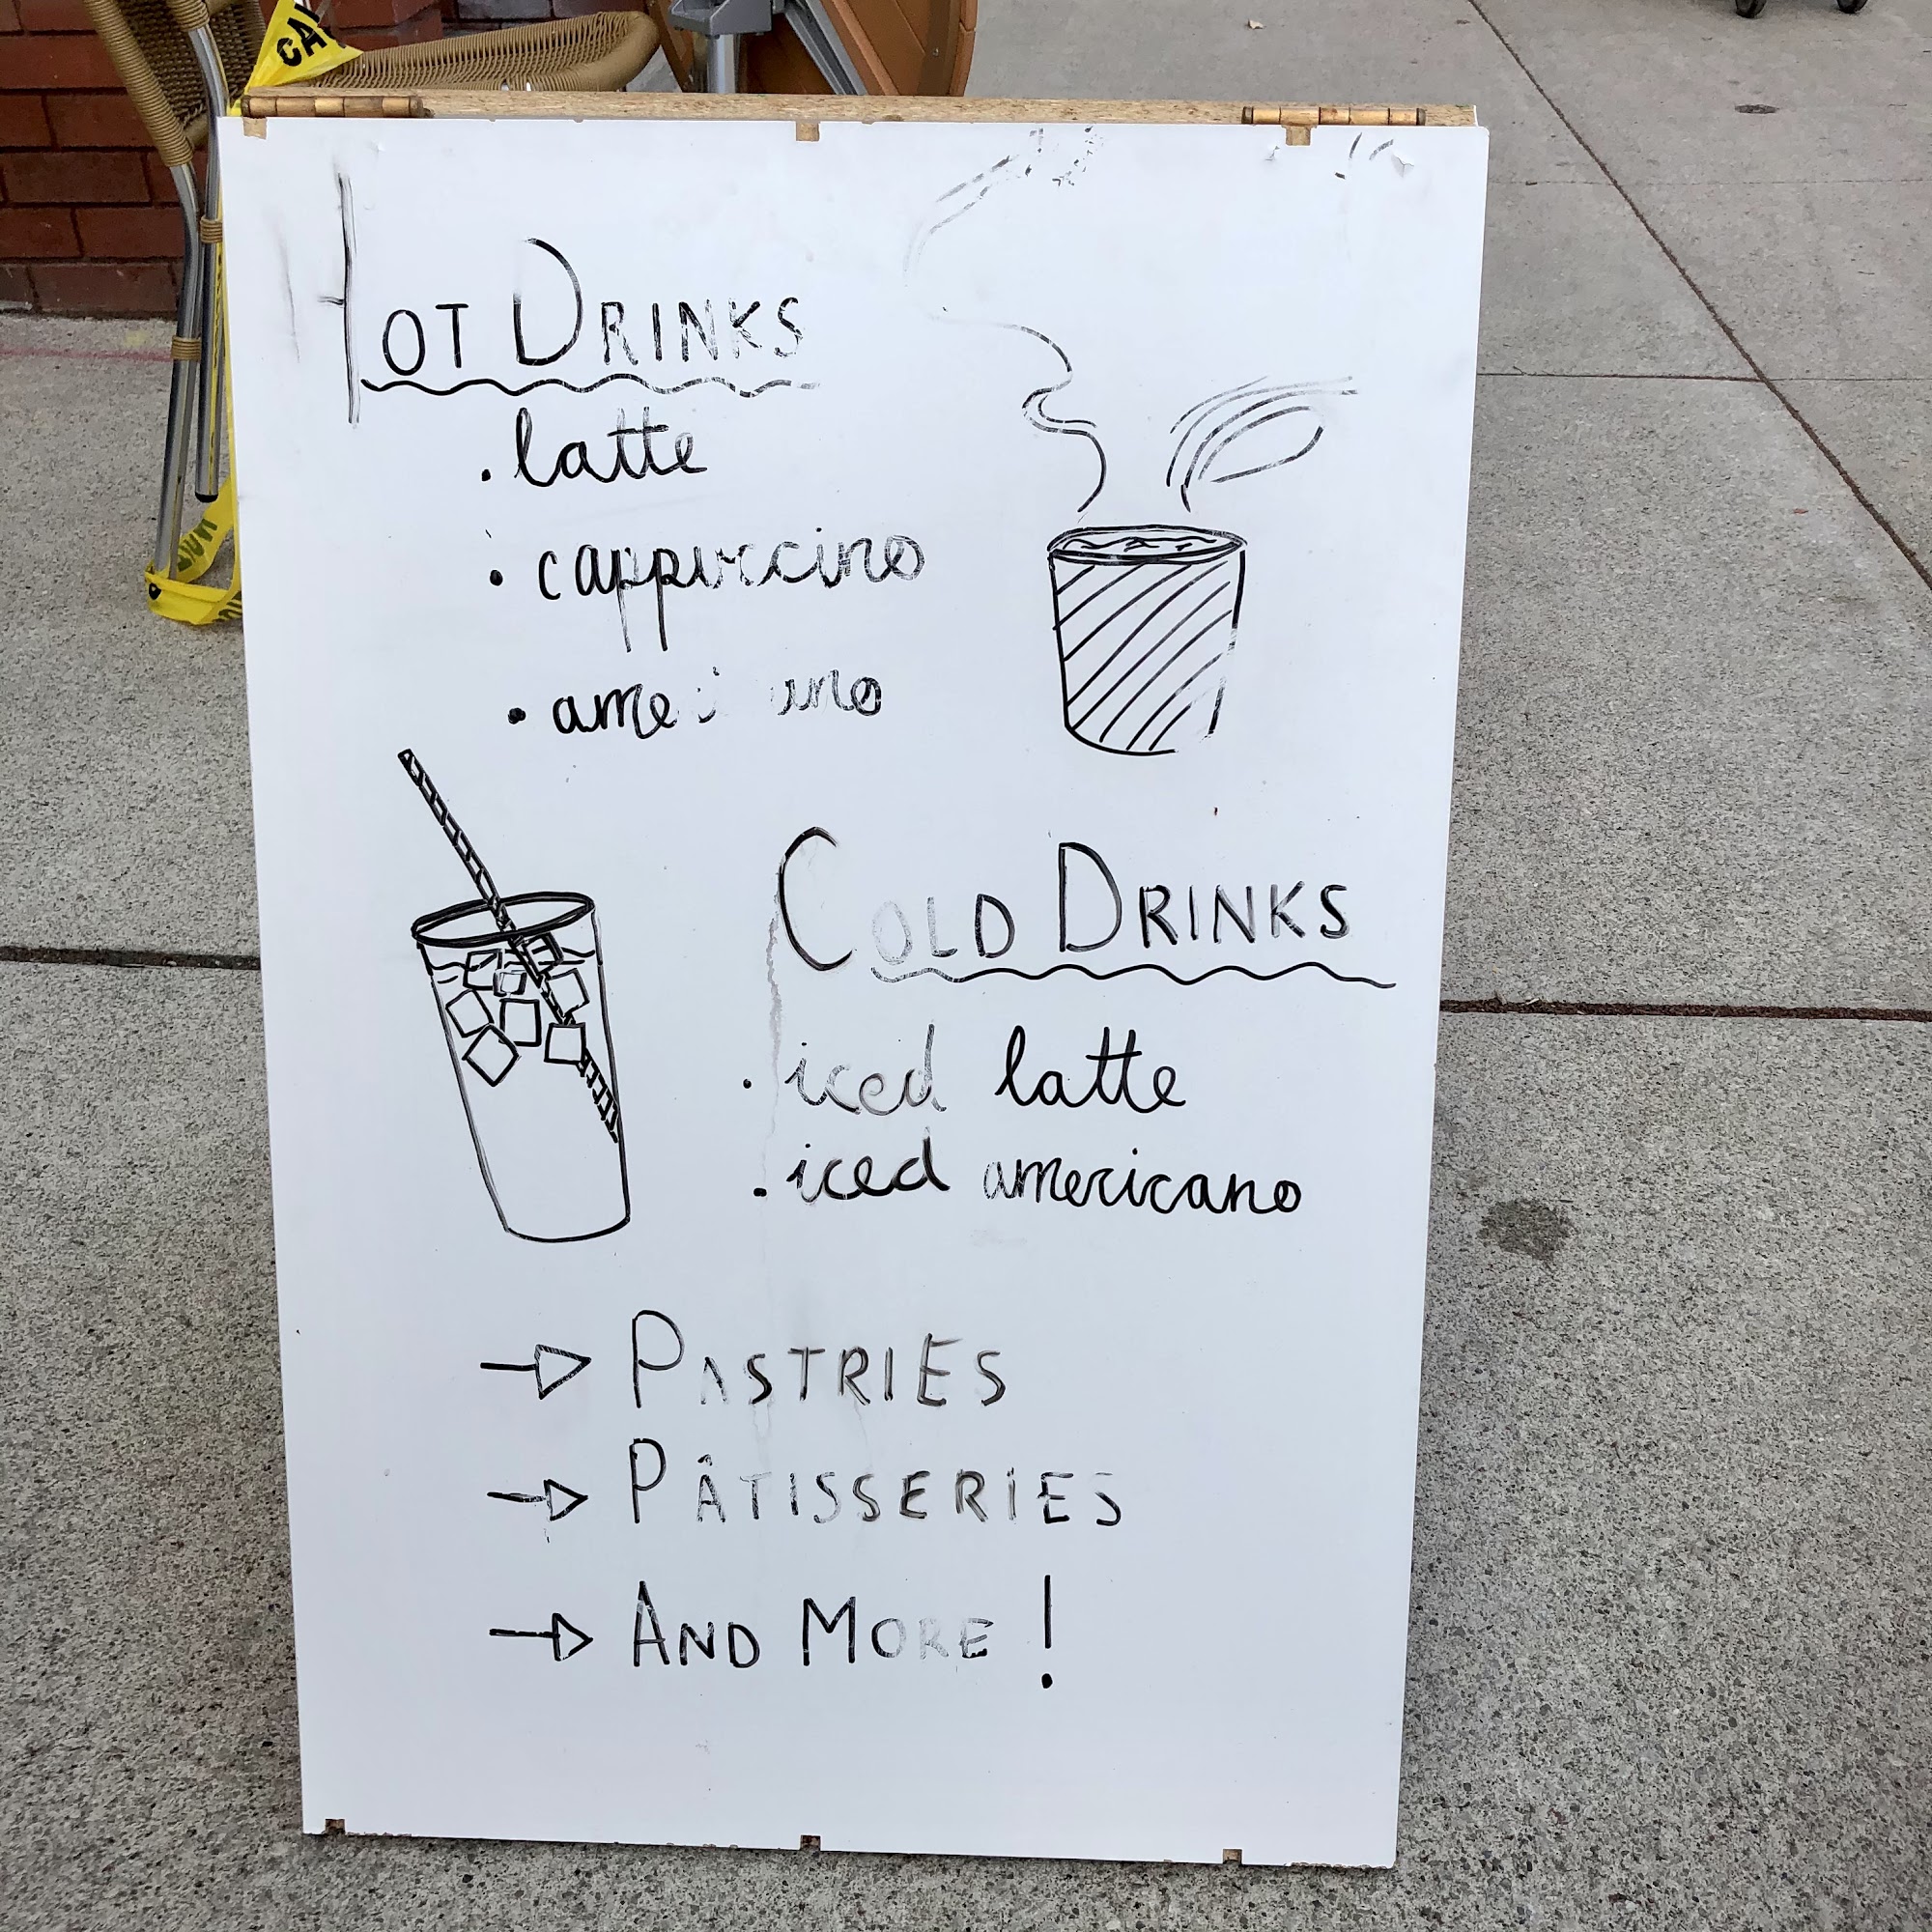 CAU
HOT DRINKS
. latte
. cappuccino
. americano
COLD DRINKS
. iced latte
. iced americano
→ PASTRIES
→ PÂTISSERIES
→ AND MORE !